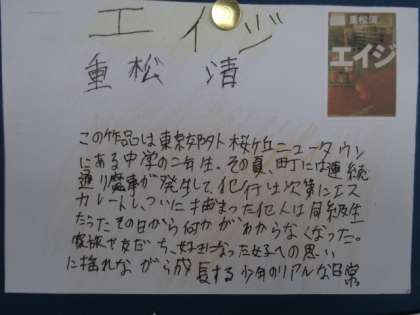 エイジ
重松 清
重松清
エイジ
この作品は東京郊外桜ヶ丘ニュータウン
にある中学の二年生。その夏、町には連続
通り魔事が発生して犯行は次第にエス
カレートし、ついに捕まった犯人は同級生
だったその日から何かがわからなくなった。
家族や友だち、好きになった女子への思い
に揺れながら成長する少年のリアルな日常